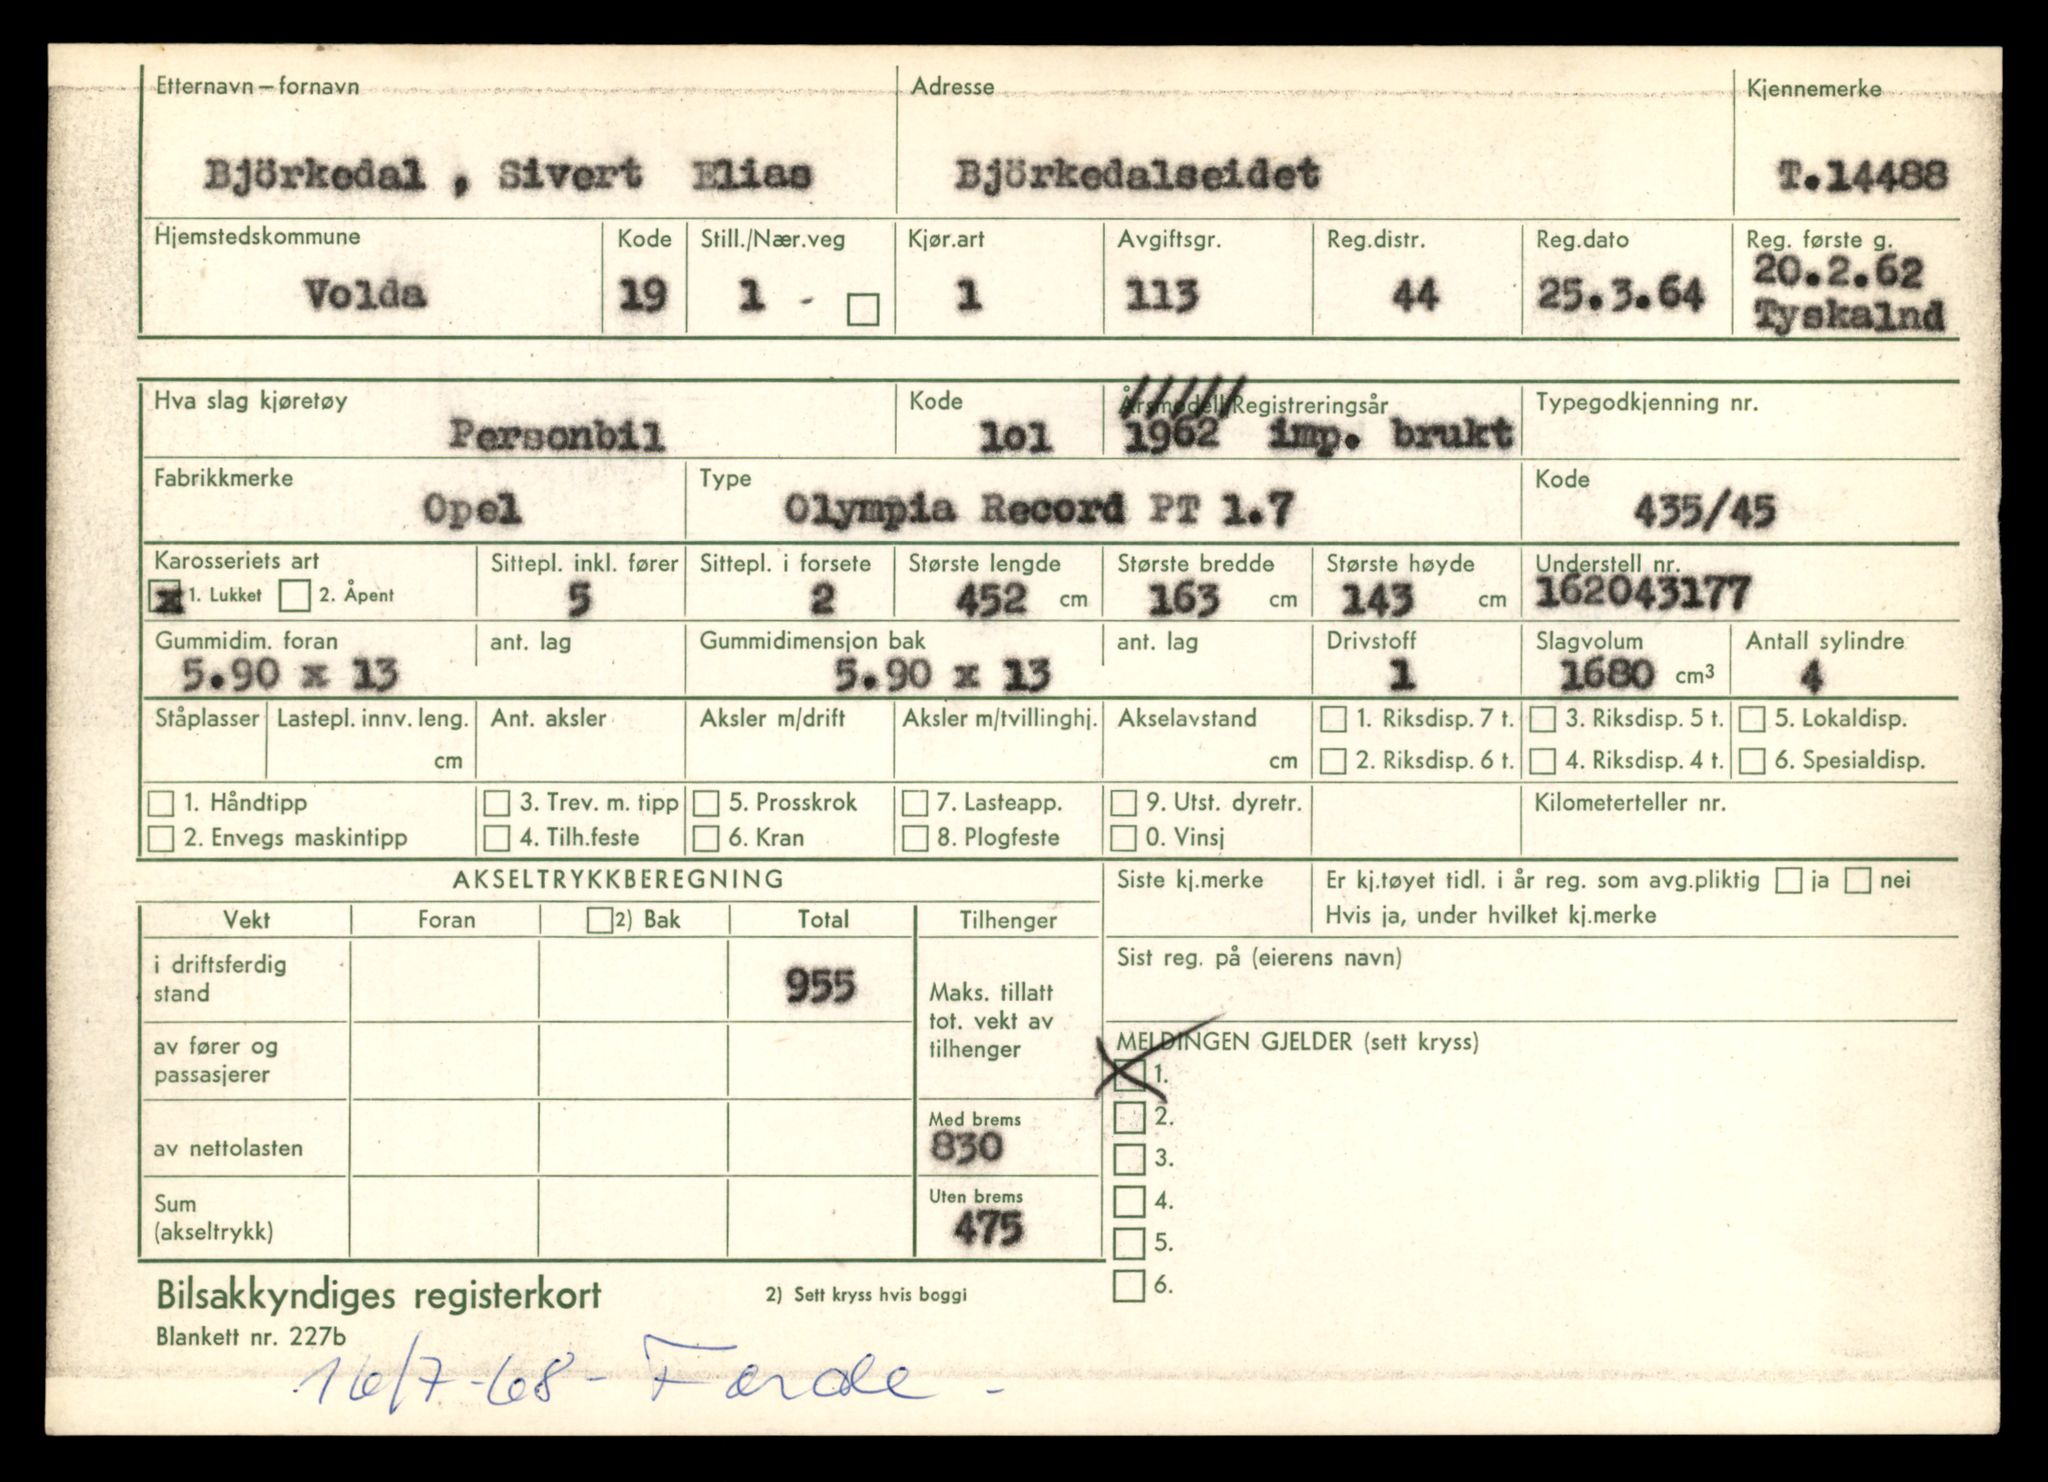 Etternavn – fornavn Adresse Kjennemerke
Björkedal , Sivert Elias Björkedalseidet T.14488
Hjemstedskommune Kode Still./Nær.veg Kjør.art Avgiftsgr. Reg.distr. Reg.dato Reg. første g.
Volda 19 1 - 1 113 44 25.3.64 20.2.62
Tyskalnd
Hva slag kjøretøy Kode Årsmodell/Registreringsår Typegodkjenning nr.
Personbil 1o1 1962 imp. brukt
Fabrikkmerke Type Kode
Opel Olympia Record PT 1.7 435/45
Karosseriets art Sittepl. inkl. fører Sittepl. i forsete Største lengde Største bredde Største høyde Understell nr.
x 1. Lukket 2. Åpent 5 2 452 cm 163 cm 143 cm 162043177
Gummidim. foran ant. lag Gummidimensjon bak ant. lag Drivstoff Slagvolum Antall sylindre
5.90 x 13 5.90 x 13 1 1680 cm³ 4
Ståplasser Lastepl. innv. leng. Ant. aksler Aksler m/drift Aksler m/tvillinghj. Akselavstand 1. Riksdisp. 7 t. 3. Riksdisp. 5 t. 5. Lokaldisp.
cm cm 2. Riksdisp. 6 t. 4. Riksdisp. 4 t. 6. Spesialdisp.
1. Håndtipp 3. Trev. m. tipp 5. Prosskrok 7. Lasteapp. 9. Utst. dyretr. Kilometerteller nr.
2. Envegs maskintipp 4. Tilh.feste 6. Kran 8. Plogfeste 0. Vinsj
AKSELTRYKKBEREGNING Siste kj.merke Er kj.tøyet tidl. i år reg. som avg.pliktig ja nei
Hvis ja, under hvilket kj.merke
Vekt Foran 2) Bak Total Tilhenger
Sist reg. på (eierens navn)
i driftsferdig
stand 955
Maks. tillatt
tot. vekt av
tilhenger
av fører og
passasjerer
MELDINGEN GJELDER (sett kryss)
1.
2.
3.
4.
5.
6.
av nettolasten Med brems
830
Sum
(akseltrykk) Uten brems
475
Bilsakkyndiges registerkort 2) Sett kryss hvis boggi
Blankett nr. 227b
16/7-68 - Førde -